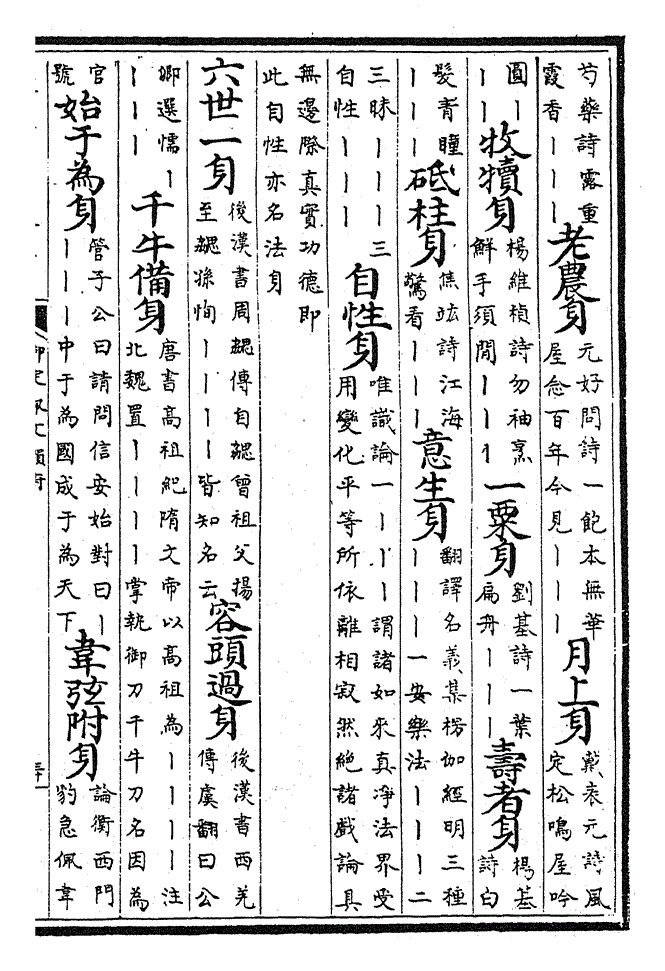 芍藥詩露重霞香｜｜｜老農身元好問詩一飽本無華屋念百年今見｜｜｜月上身戴表元詩風定松鳴屋吟
圓｜｜｜牧犢身楊維楨詩勿袖烹鮮手須閒｜｜｜一粟身劉基詩一葉扁舟｜｜｜壽者身楊基詩白
髮青瞳｜｜｜砥柱身焦竑詩江海驚看｜｜｜意生身翻譯名義集楞伽經明三種｜｜｜一安樂法｜｜｜二
三昧｜｜｜三自性｜｜｜自性身唯識論一｜｜｜謂諸如來真淨法界受用變化平等所依離相寂然絕諸戲論具
無邊際真實功德即此自性亦名法身
六世一身後漢書周勰傳自勰曾祖父揚至勰孫恂｜｜｜｜皆知名云容頭過身後漢書西羌傳虞翻曰公
卿選懦｜｜｜｜千牛備身唐書高祖紀隋文帝以高祖為｜｜｜｜注北魏置｜｜｜｜掌執御刀千牛刀名因為
官號始于為身管子公曰請問信安始對曰｜｜｜｜中于為國成于為天下韋弦附身論衡西門豹急佩韋